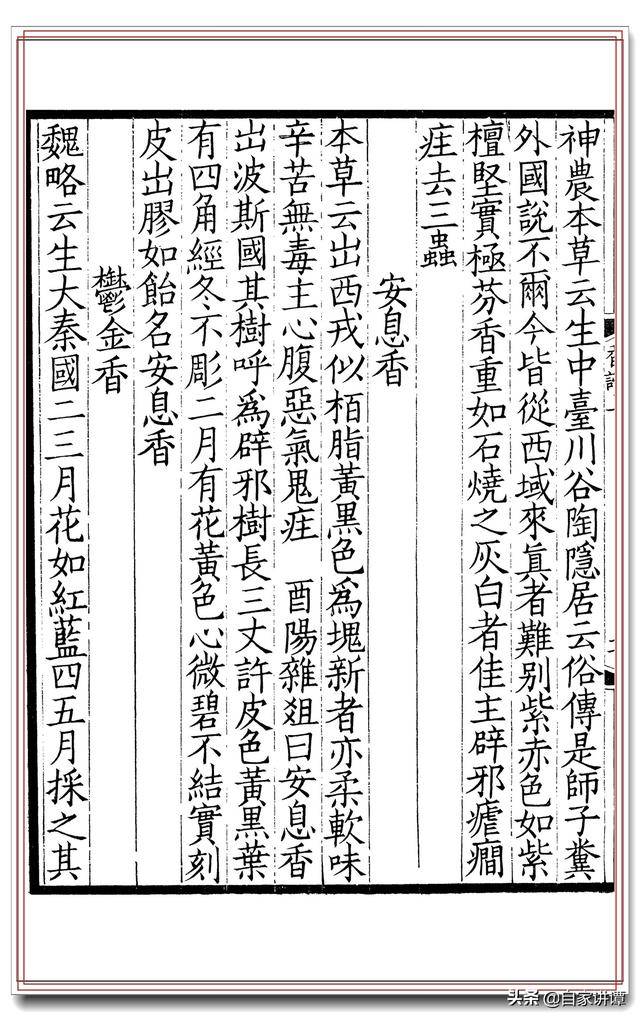 神農本草云生中臺川谷陶隱居云俗傳是師子糞
外國說不爾今皆從西域來真者難別紫赤色如紫
檀堅實極芬香重如石燒之灰白者佳主辟邪瘧癇
疰去三蟲
安息香
本草云出西戎似栢脂黃黑色為塊新者亦柔軟味
辛苦無毒主心腹惡氣鬼疰　酉陽雜俎曰安息香
出波斯國其樹呼為辟邪樹長三丈許皮色黃黑葉
有四角經冬不彫二月有花黃色心微碧不結實刻
皮出膠如飴名安息香
鬱金香
魏略云生大秦國二三月花如紅藍四五月採之其
头条 @自家讲谭